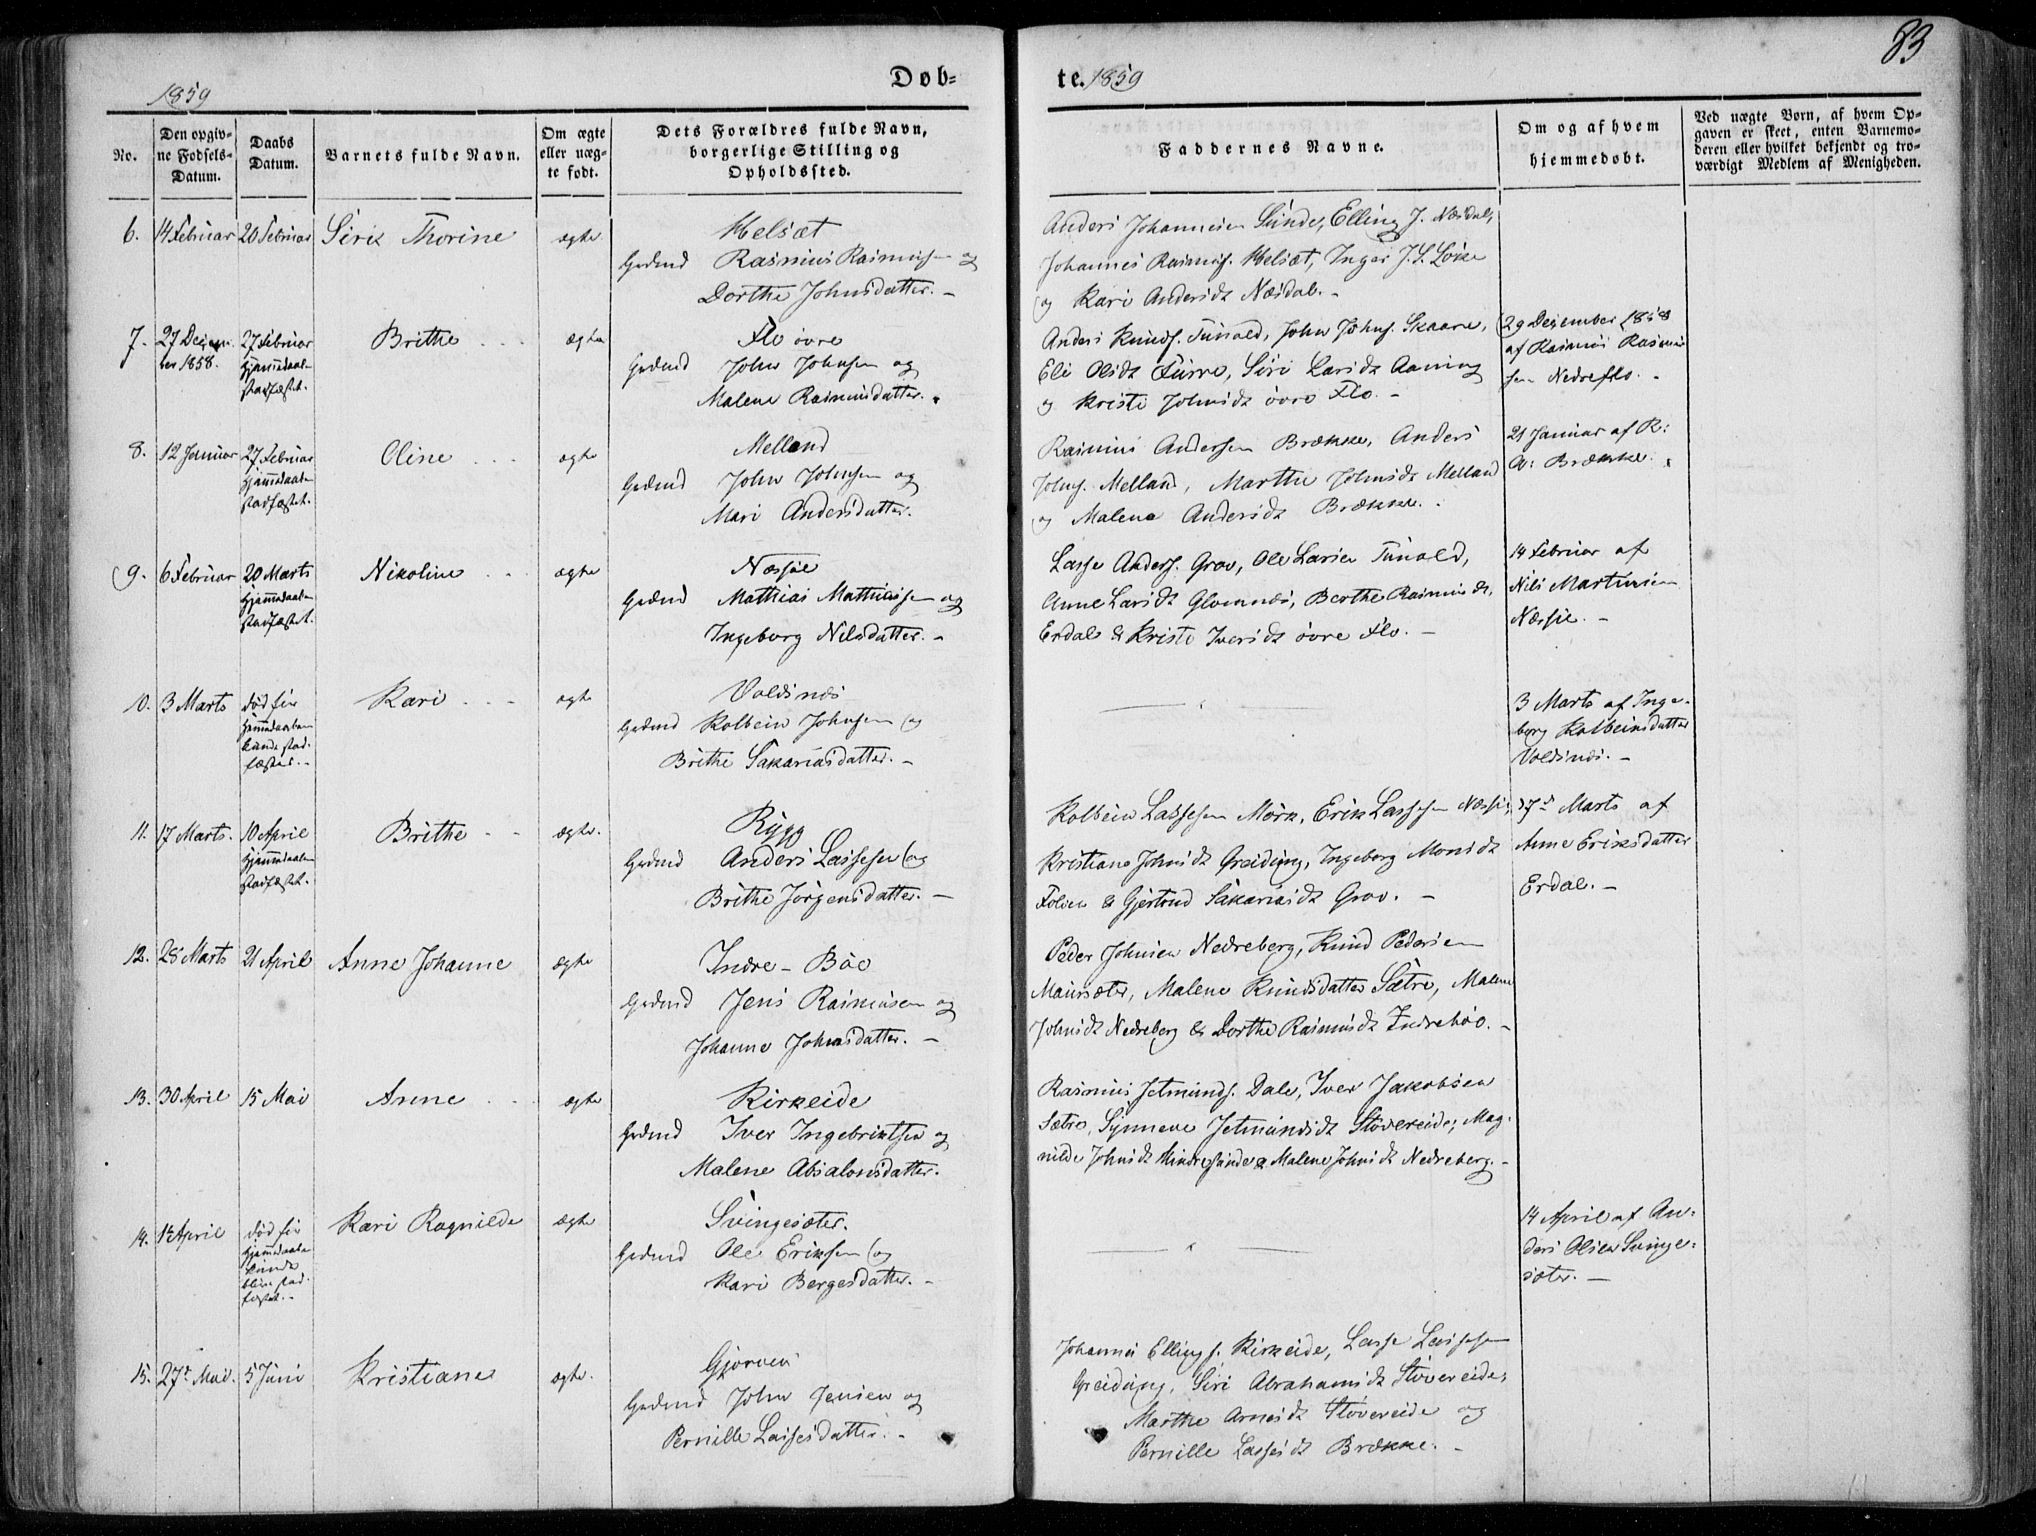 83
1859
Døb-
te. 1859
No.
Den opgiv-
ne Fødsels-
Datum.
Daabs
Datum.
Barnets fulde Navn.
Om ægte
eller uæg-
te født.
Dets Forældres fulde Navn,
borgerlige Stilling og
Opholdssted.
Faddernes Navne.
Om og af hvem
hjemmedøbt.
Ved uægte Børn, af hvem Op-
gaven er skeet, enten Barnemo-
deren eller hvilket bekjendt og tro-
værdigt Medlem af Menigheden.
6. 14 Februar 20 Februar Siri Thorine ægte
Helsæt
Grdmd Rasmus Rasmussen og
Dorthe Johnsdatter. -
Anders Johannesen Sunde, Elling J. Næsdal,
Johannes Rasmusf. Helsæt, Inger J.
og Kari Andersdt Næsdal. -
7. 27 Decem-
ber 1858.
27 Februar
hjemmedaaben
stadfæstet.
Brithe ægte
Flo øvre
Grdmd John Johnsen og
Malene Rasmusdatter.
Anders Knudf. Tunold, John Johnf. Skaare,
Eli Olsdt Furre, Siri Larsdt Aaning
og Kristi Johnsdt øvre Flo. -
29 December 1858
af Rasmus Rasmus-
sen Nedreflo. -
8. 12 Januar 27 Februar
hjemmedaaben
stadfæstet.
Oline ægte
Melland
Grdmd John Johnsen og
Mari Andersdatter.
Rasmus Andersen Brække, Anders
Johnf. Melland, Marthe Johnsdt Melland
og Malene Andersdt Brække.
21 Januar af R:
A: Brække.
9. 6 Februar 20 Marts
hjemmedaaben
stadfæstet.
Nikoline ægte
Næssie
Grdmd Mathias Mathiassen og
Ingeborg Nilsdatter. -
Lasse Andersf. Grov, Ole Larsen Tunold,
Anne Larsdt Glomnæs, Berthe Rasmusdt,
Erdal & Kristi Iversdt øvre Flo. -
14 Februar af
Nils Martinsen
Næssie. -
10. 3 Marts død før
hjemmedaaben
kunde stad-
fæstes. -
Kari ægte
Voldsnæs
Grdmd Kolbein Johnsen og
Brithe Sakariasdatter. -
3 Marts af Inge-
borg Kolbeinsdatter
Voldsnæs. -
11. 17 Marts. 10 April
hjemmedaaben
stadfæstet.
Brithe ægte.
Rygg
Grdmd Anders Lassesen og
Brithe Jörgensdatter. -
Kolbein Lassesen Mørk, Erik Lassesen Næssie,
Kristiane Johnsdt Greidung, Ingeborg Monsdt
Folven & Gjertrud Sakariasdt Grov. -
17d Marts af
Anne Eriksdatter
Erdal. -
12. 28 Marts 21 April Anne Johanne ægte
Indre-Böe
Grdmd Jens Rasmusen og
Johanne Johnsdatter. -
Peder Johnsen Nedreberg, Knud Pedersen
Maursæter, Malene Knudsdatter Sætre, Malene
Johnsdt Nedreberg & Dorthe Rasmusdt Indrebøe. -
13. 30 April 15 Mai Anne ægte
Kirkeide
Grdmd Iver Ingebriktsen og
Malene Absalonsdatter.
Rasmus Jetmundf. Dale, Iver Jakobsen
Sætre, Synneve Jetmundsdt Støvereide, Mag-
nilde Johnsdt Hindresunde & Malene Johnsdt Nedreberg. -
14. April død før
hjemmedaaben
kunde
blive stad-
fæstet. -
Kari Ragnilde ægte
Svingesæter.
Grdmd Ole Eriksen og
Kari Bergesdatter. -
14 April af An-
ders Olsen Svinge-
sæter. -
15. 27de Mai. 5 Juni Kristiane ægte.
Gjørven
Grdmd John Jensen og
Pernille Lassesdatter. -
Johannes Ellingf. Kirkeide, Lasse Lassesen
Greidung, Siri Abrahamsdt Støvereide,
Marthe Arnesdt Støvereide og
Pernille Lassesdt Brække. -